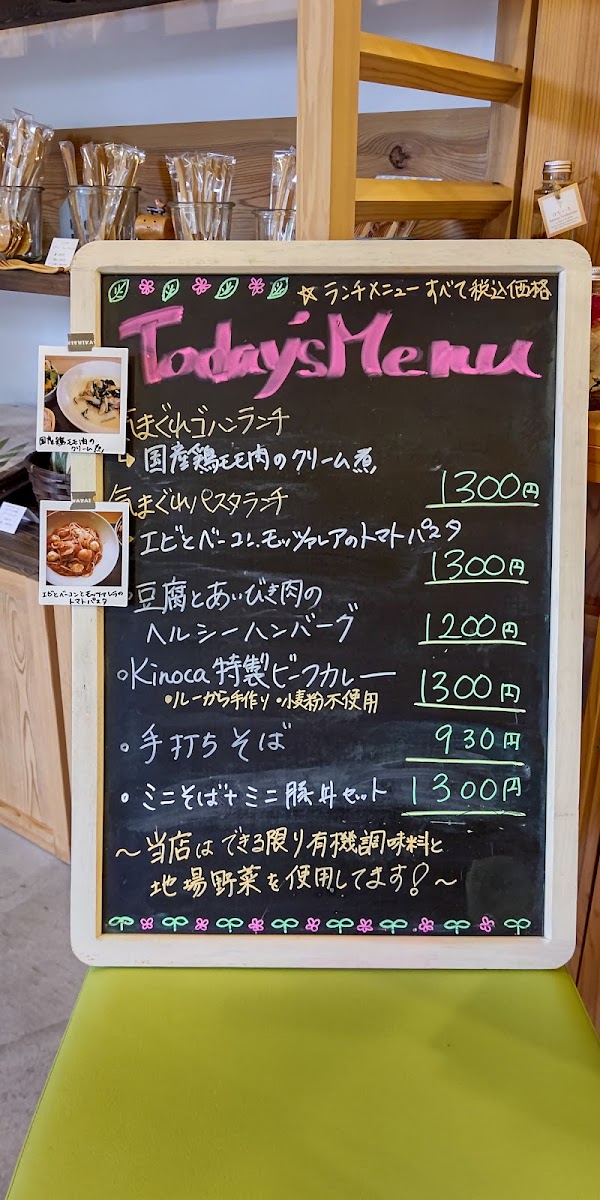 ☆ランチメニューすべて税込価格
Today's Menu
気まぐれゴハンランチ
↳国産鶏モモ肉のクリーム煮
1300円
気まぐれパスタランチ
エビとベーコン、モッツァレアのトマトパスタ
1300円
・豆腐とあいびき肉の
ヘルシーハンバーグ
1200円
・Kinoca特製ビーフカレー
1300円
・ルーから手作り・小麦粉不使用
・手打ちそば
930円
・ミニそば+ミニ豚丼セット
1300円
~当店はできる限り有機調味料と
地場野菜を使用してます!~
国産鶏モモ肉の
クリーム煮
エビとベーコンとモッツァレラの
トマトパスタ